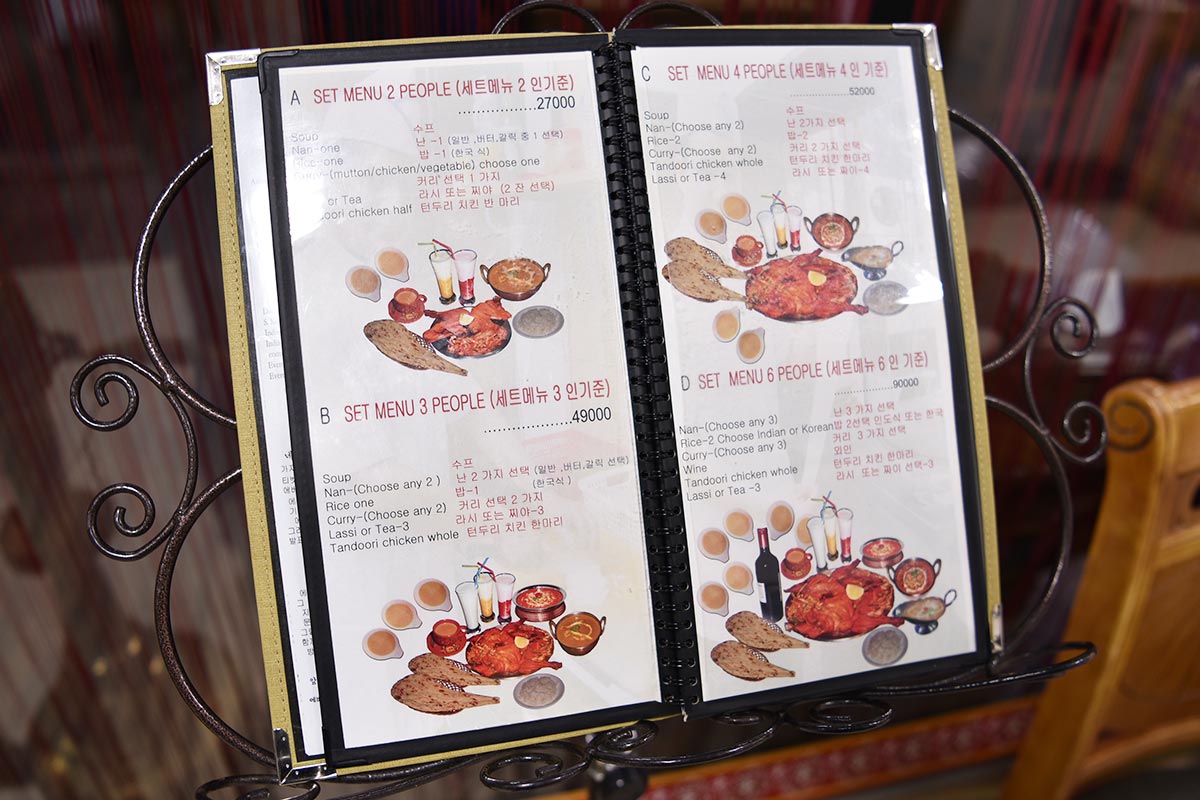 A SET MENU 2 PEOPLE (세트메뉴 2 인기준)
..................27000
Soup 수프
Nan-one 난 -1 (일반 ,버터,갈릭 중 1 선택)
Rice-one 밥 -1 (한국 식)
Curry-(mutton/chicken/vegetable) choose one
커리 선택 1 가지
or Tea 라시 또는 찌야 (2 잔 선택)
doori chicken half 턴두리 치킨 반 마리
B SET MENU 3 PEOPLE (세트메뉴 3 인기준)
......................49000
Soup 수프
Nan-(Choose any 2 ) 난 2 가지 선택 (일반 ,버터,갈릭 선택)
Rice one 밥-1 (한국식 )
Curry-(Choose any 2) 커리 선택 2 가지
Lassi or Tea-3 라시 또는 찌야-3
Tandoori chicken whole 턴두리 치킨 한마리
C SET MENU 4 PEOPLE (세트메뉴 4 인 기준)
......................52000
Soup 수프
Nan-(Choose any 2) 난 2가지 선택
Rice-2 밥-2
Curry-(Choose any 2) 커리 2 가지 선택
Tandoori chicken whole 턴두리 치킨 한마리
Lassi or Tea -4 라시 또는 찌야-4
D SET MENU 6 PEOPLE (세트메뉴 6 인 기준)
......................90000
Nan-(Choose any 3) 난 3 가지 선택
Rice-2 Choose Indian or Korean 밥 2선택 인도식 또는 한국
Curry-(Choose any 3) 커리 3 가지 선택
Wine 와인
Tandoori chicken whole 턴두리 치킨 한마리
Lassi or Tea -3 라시 또는 찌이 선택-3